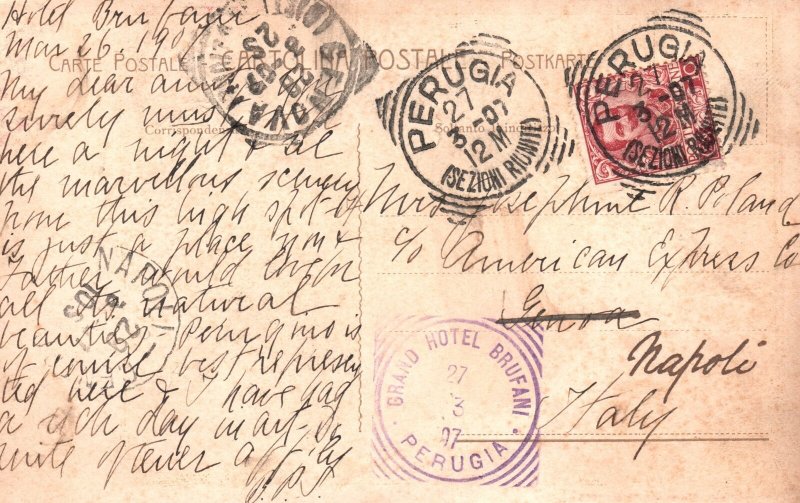 Hotel Brufani
Mar 26. 190
My dear
surely must
here a night & see
the marvellous scenery
from this high spot. It
is just a place you &
Father would love
all its natural
beauties. Perugino is
of course best represen
ted here & I have had
a rich day in art. Do
write oftener aff'ly
CARTE POSTALE CARTOLINA POSTALE POSTKARTE
Corrispondenza
Soltanto l'indirizzo
GENOVA
PERUGIA
27
3-07
12 M
(SEZIONI RIUNITE)
PERUGIA
27
3-07
12 M
(SEZIONI RIUNITE)
NAPOLI
Mrs Josephine R. Poland
c/o American Express Co
Genova
Napoli
Italy
GRAND HOTEL BRUFANI
27
3
07
PERUGIA